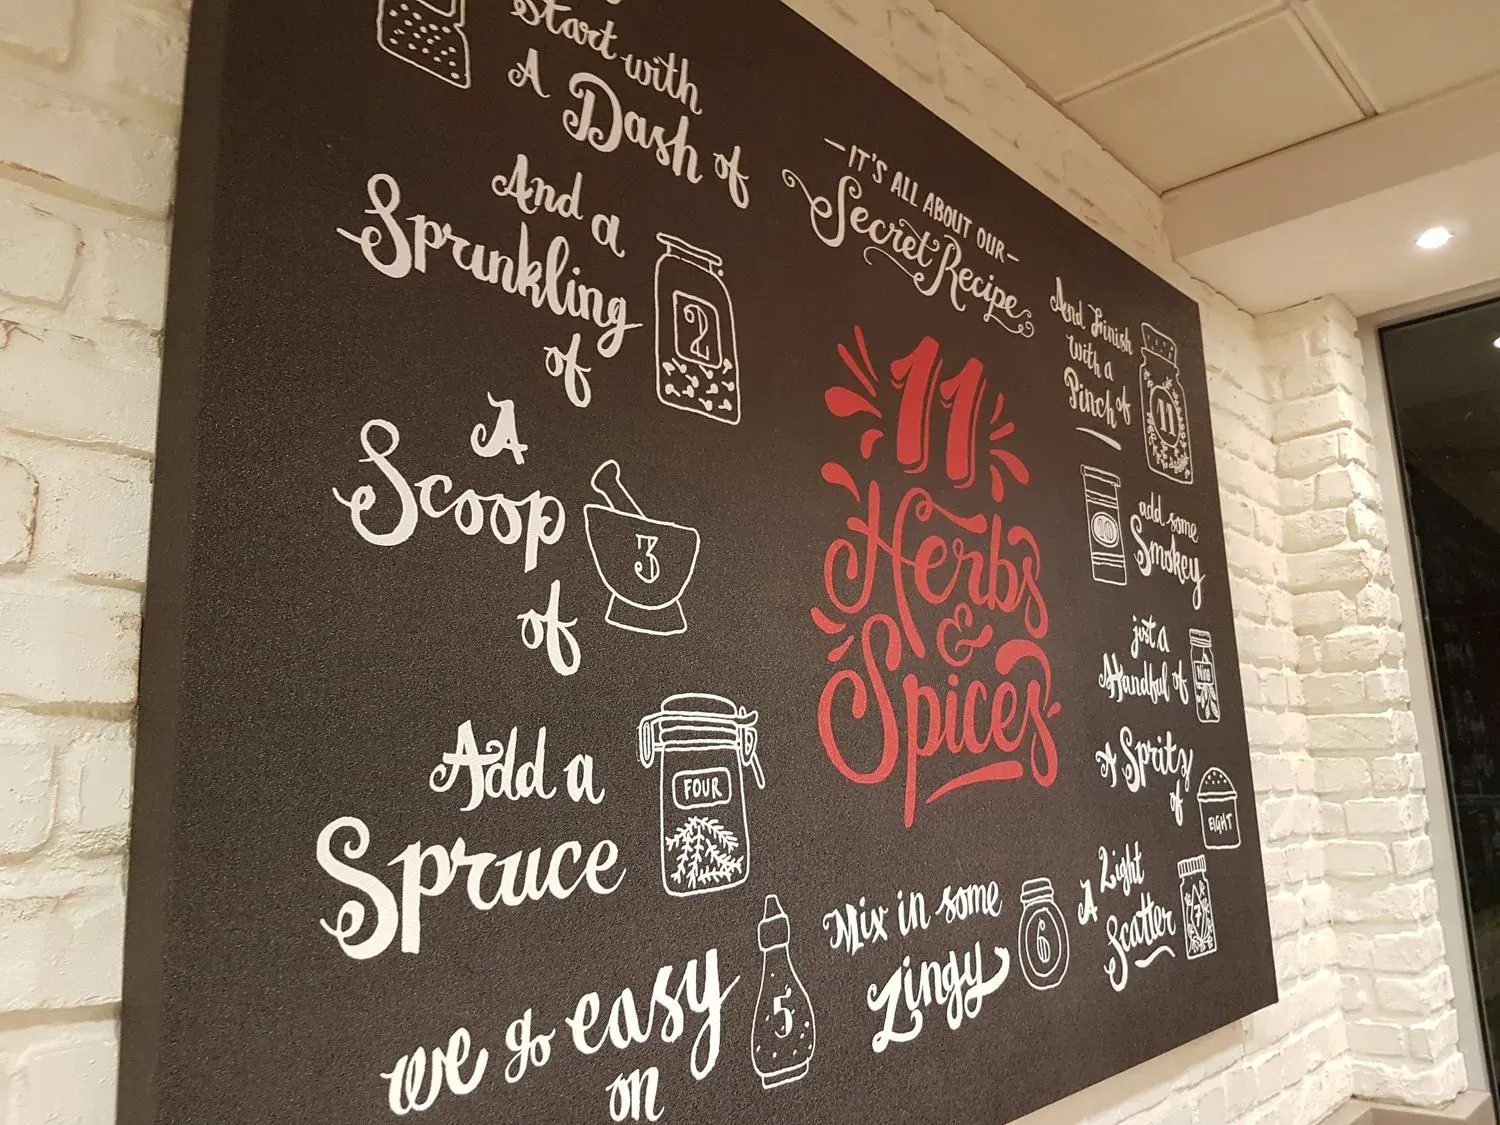 Start with
A Dash of
And a
Sprinkling
of
2
A
Scoop
of
3
Add a
Spruce
FOUR
we go easy
on
5
Mix in some
Zingy
6
A Light
Scatter
7
A Spritz
of
EIGHT
just a
Handful of
Nine
add some
Smokey
10
And Finish
with a
Pinch of
11
IT'S ALL ABOUT OUR
Secret Recipe
11
Herbs
&
Spices